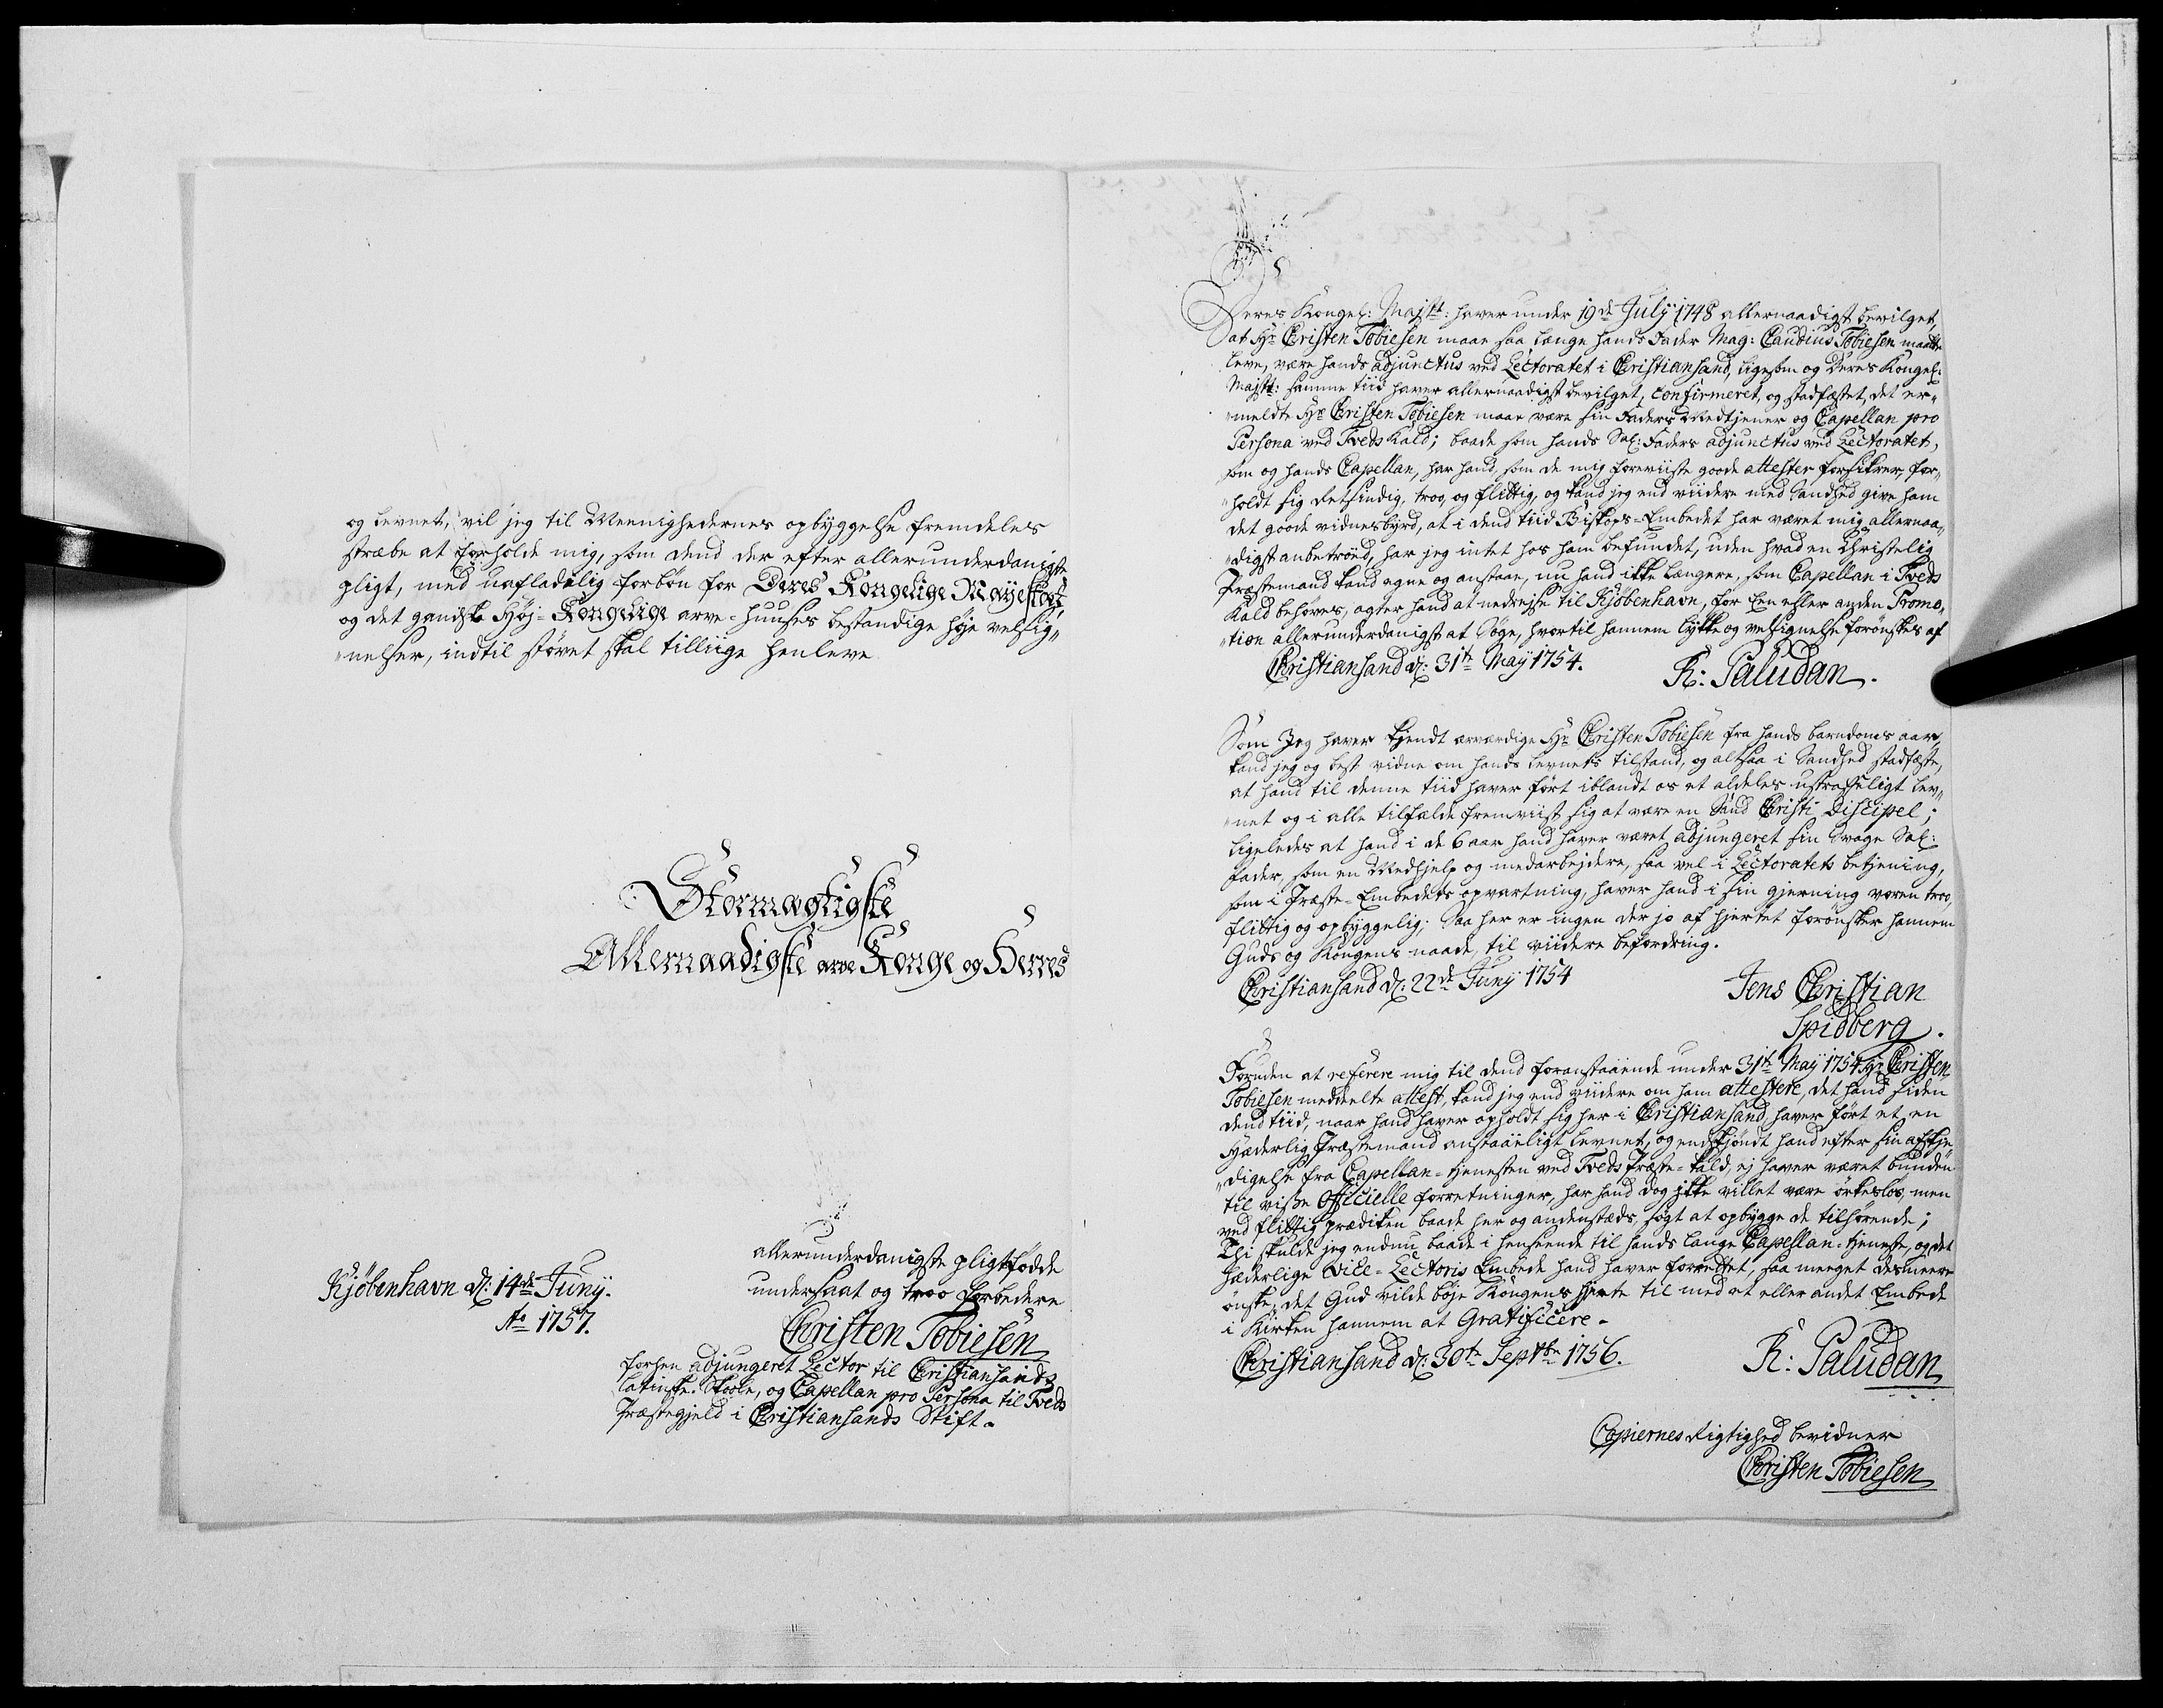 og levnet, vil jeg til Meenighedernes opbyggelse fremdeles
stræbe at forholde mig, som dend der efter allerunderdanigste
pligt, med uafladelig forbøn for Deres Kongelige Mayestæt,
og det gandske Høj-Kongelige arve-huuses bestandige høje velsig„
„nelser, indtil støvet skal tilliige henleve
Stormægtigste
Allernaadigste arve Konge og Herres
allerunderdanigste pligtfødde
undersaat og troe forbedere
Kjøbenhavn d: 14de Junij.
Ao 1757.
Christen Tobiesen
forhen adjungeret Lector til Christiansands
latinske Skoole, og Capellan pro Persona til Tveds
Præstegjeld i Christiansands Stift.
Deres Kongel: Majstt: haver under 19de Julij 1748 allernaadigst bevilget,
at Hr Christen Tobiesen maae saa længe hands Fader Mag: Claudius Tobiesen maatte
leve, være hands adjunctus ved Lectoratet i Christiansand, ligesom og Deres Kongel:
Majstt: samme tiid haver allernaadigst bevilget, confirmeret, og stadfæstet, det er„
„meldte Hr Christen Tobiesen maae være sin Faders Medtjener og Capellan pro
Persona ved Tveds Kald; baade som hands Sal: Faders adjunctus ved Lectoratet,
som og hands Capellan, har hand, som de mig foreviiste goode attester forsikrer, for„
„holdt sig Retsindig, troe, og flittig, og kand jeg end viidere med Sandhed give ham
det goode vidnesbyrd, at i dend tiid Biskops-Embedet har været mig allernaa„
„digst anbetroed, har jeg intet hos ham befundet, uden hvad en Christelig
Præstemand kand egne og anstaae, nu hand ikke længere, som Capellan i Tveds
Kald behøves, agter hand at nedrejse til Kjøbenhavn, for een eller anden Promo„
„tion allerunderdanigst at Søge, hvortil hannem lykke og velsignelse forønskes af
Christiansand d: 31te Maij 1754.
R: Paludan.
Som Jeg haver kjendt ærværdige Hr Christen Tobiesen fra hands barndoms aar,
kand jeg og best vidne om hands levnets tilstand, og altsaa i Sandhed stadfæste,
at hand til denne tiid haver ført iblandt os et aldeles ustraffeligt lev„
„net og i alle tilfælde fremviist sig at være en Sand Christi Discipel;
ligeledes at hand i de 6 aar hand haver været adjungeret sin Svage Sal:
fader, som en Medhjelp og medarbejdere, saa vel i Lectoratets betjening,
som i Præste-Embedets opvartning, haver hand i sin gjerning været troe,
flittig og opbyggelig; Saa her er ingen der jo af hjertet forønsker hannem
Guds og Kongens naade, til viidere befordring.
Christiansand d: 22de Junij 1754
Jens Christian
Spidberg.
Foruden at referere mig til dend foranstaaende under 31te Maij 1754 Hr Christen
Tobiesen meddeelte attest, kand jeg end viidere om ham attestere, det hand siden
dend tiid, naar hand haver opholdt sig her i Christiansand, haver ført et, en
Hæderlig Præstemand anstaaeligt levnet, og endskjøndt hand efter sin afskje„
„digelse fra Capellan-tjenesten ved Tveds Præste-kald, ej haver været bunden
til visse officielle forretninger, har hand dog ikke villet være ørkesløs, men
ved flittig prædiken baade her og andenstæds, søgt at opbygge de tilhørende;
Thi skulde jeg endnu baade i henseende til hands lange Capellan-tjeneste, og det
hæderlige Vice-Lectoris Embede hand haver forrettet, saa meeget desmeere
ønske, det Gud vilde bøje Kongens hjerte til med et eller andet Embede
i Kirken hannem at Gratificere.
Christiansand d: 30te Septbr 1756.
R: Paludan
Copiernes Rigtighed bevidner
Christen Tobiesen